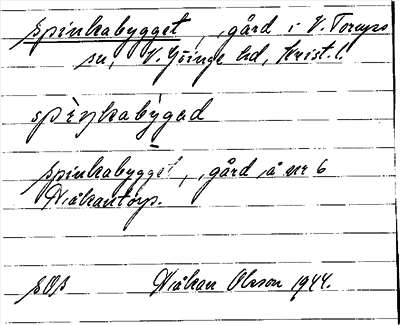 Spinkabygget, gård i V. Torups
sn, V. Göinge hd, Krist. l.
spìŋkabỳgad
Spinkabygget, gård å nr 6
Håkantorp.
SOB Håkan Olsson 1944.